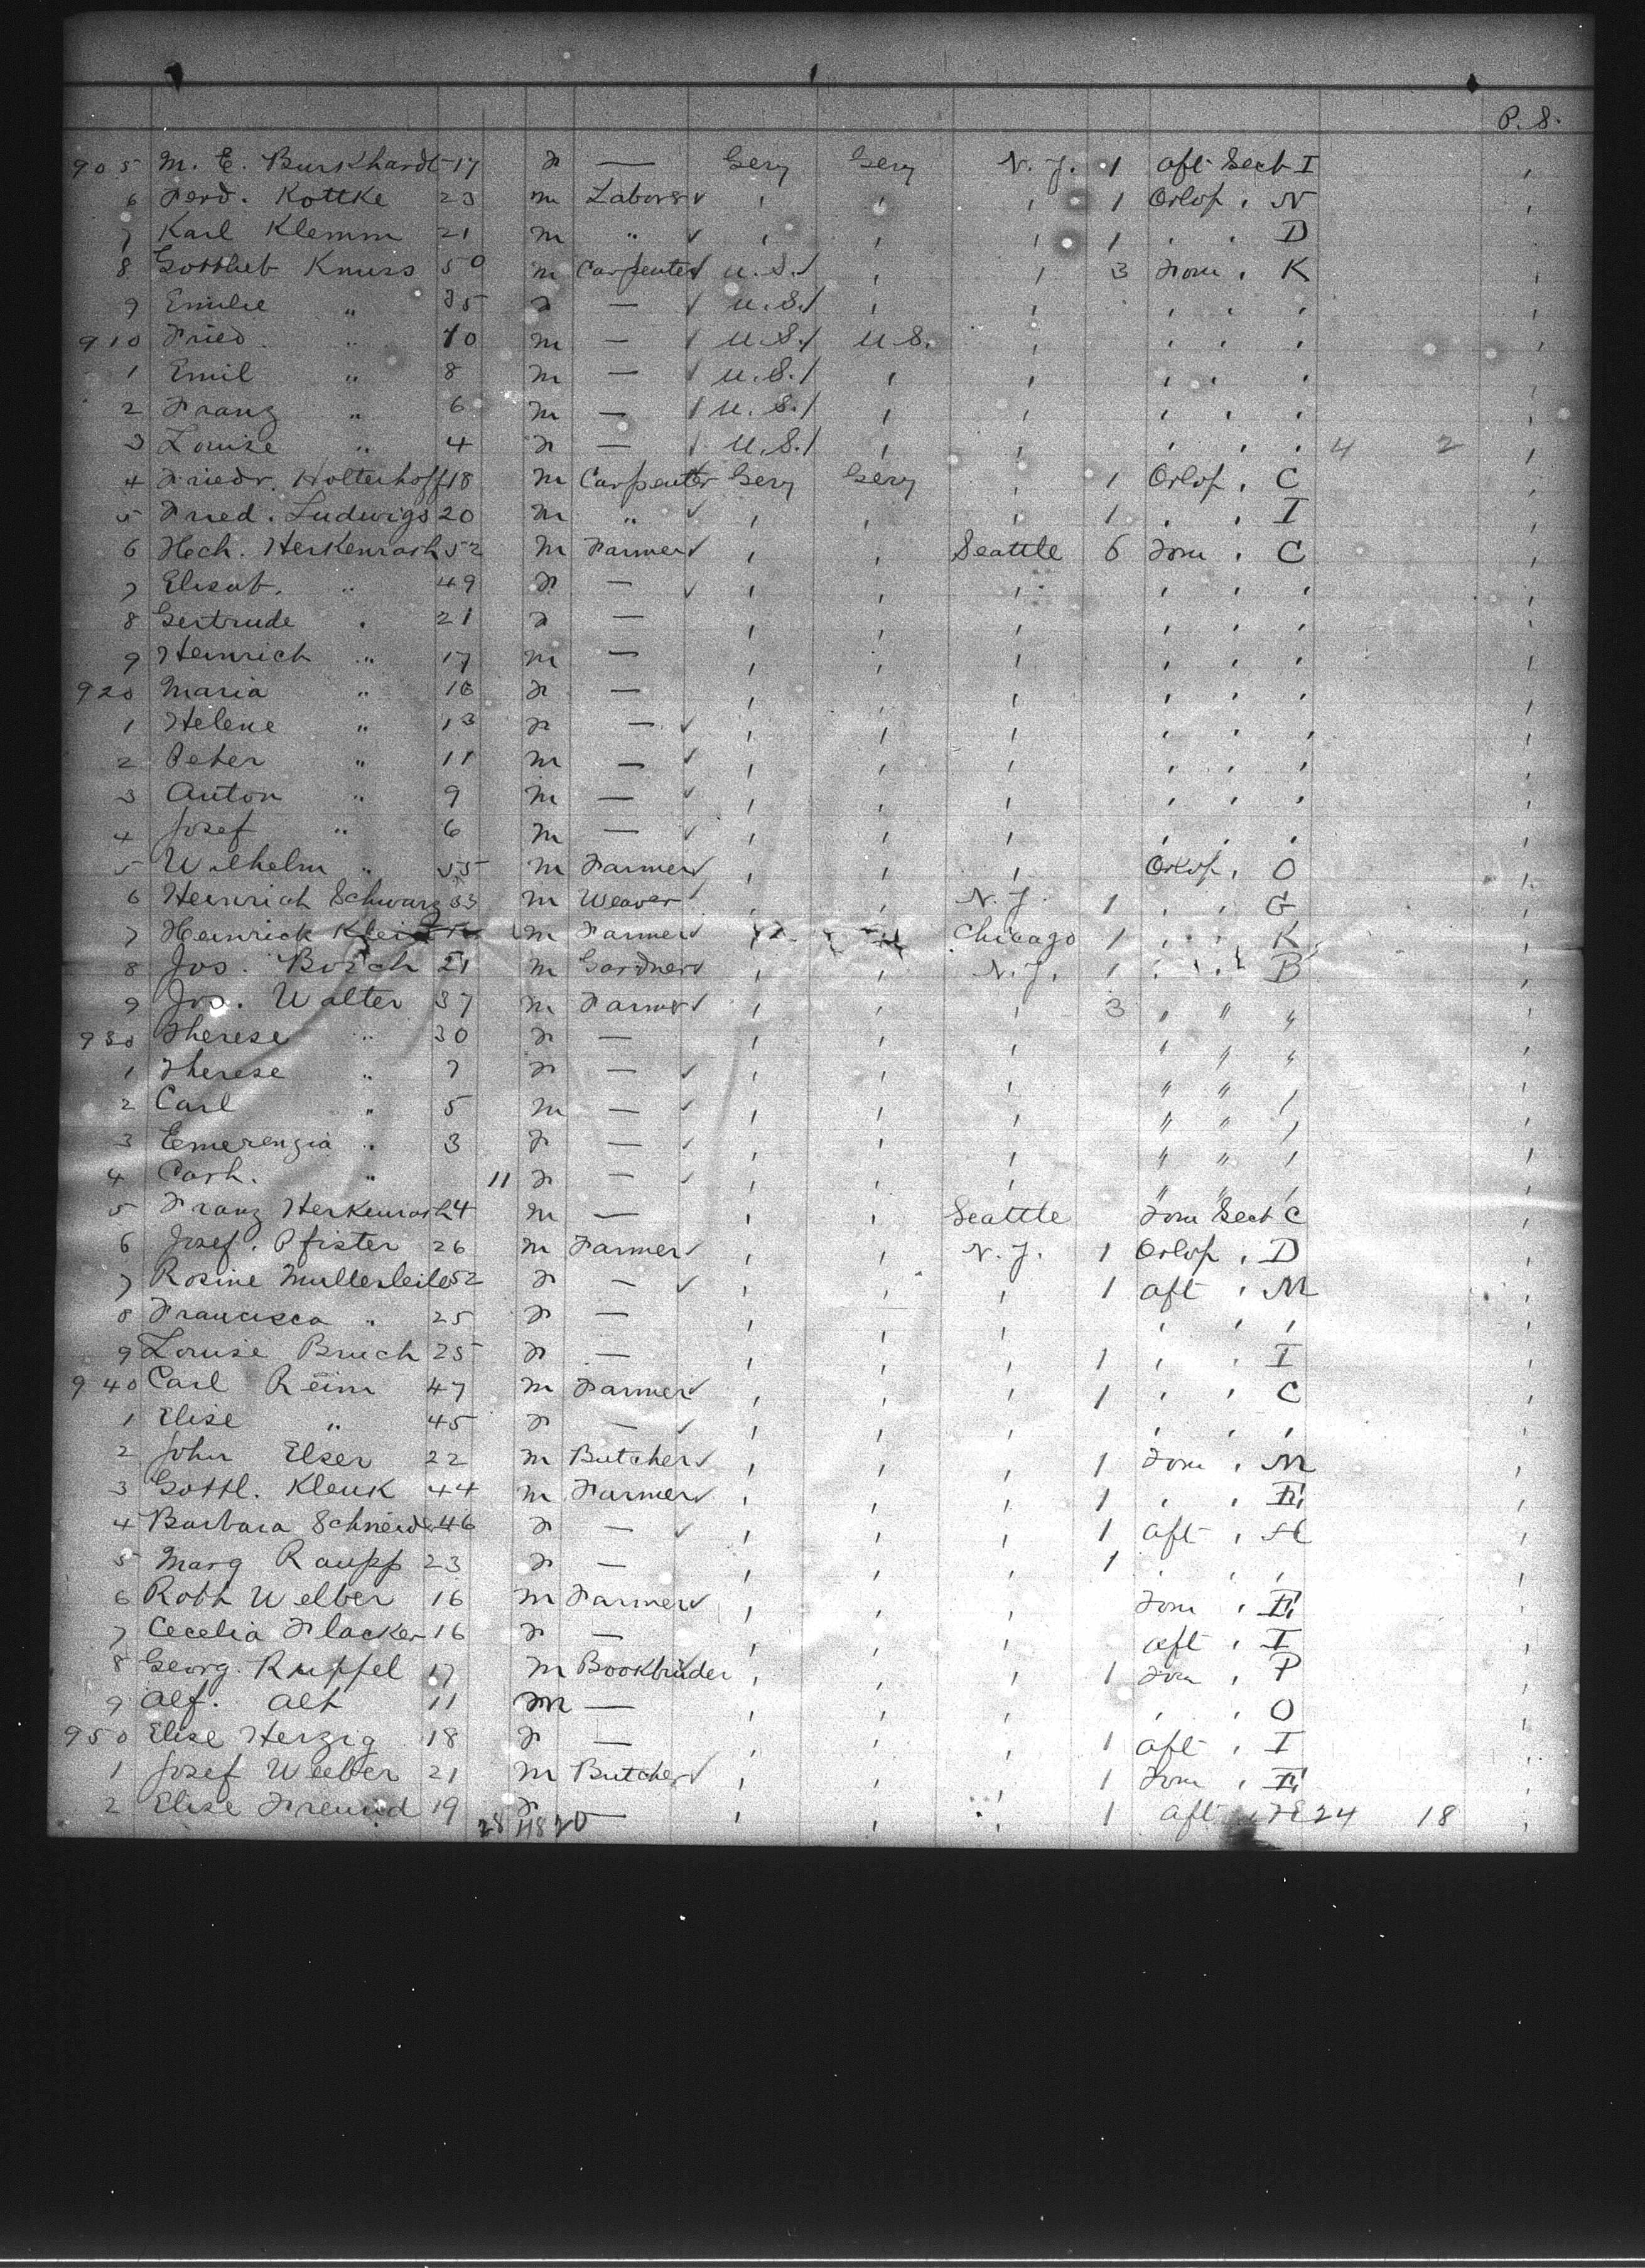 P. S.
905 M. E. Burkhardt 17 F — Gery Gery N. Y. 1 aft Sect I
6 Ferd. Kottke 23 m Laborer ✓ , , , 1 Orlop , N
7 Karl Klemm 21 m " ✓ , , , 1 , , D
8 Gottlieb Knuss 50 m Carpenter ✓ U.S./ , , 3 Forw , K
9 Emilie " 35 F — ✓ U.S./ , , , , ,
910 Fried. " 10 m — ✓ U.S./ U.S. , , , ,
1 Emil " 8 m — ✓ U.S./ , , , , ,
2 Franz " 6 m — ✓ U.S./ , , , , ,
3 Louise " 4 F — ✓ U.S./ , , , , , 4 2
4 Friedr. Holterhoff 18 m Carpenter Gery Gery , 1 Orlop , C
5 Fried. Ludwigs 20 m " ✓ , , , 1 , , I
6 Hch. Herkenrath 52 m Farmer ✓ , , Seattle 6 Forw , C
7 Elisab. " 49 F — ✓ , , , , , ,
8 Gertrude " 21 F — , , , , , ,
9 Heinrich " 17 m — , , , , , ,
920 Maria " 16 F — , , , , , ,
1 Helene " 13 F — ✓ , , , , , ,
2 Peter " 11 m — ✓ , , , , , ,
3 Anton " 9 m — ✓ , , , , , ,
4 Josef " 6 m — ✓ , , , , , ,
5 Wilhelm " 55 m Farmer ✓ , , , Orlop , O
6 Heinrich Schwarz 33 m Weaver , , N. Y. 1 , , G
7 Heinrich m Farmer ✓ Chicago 1 , , K
8 Jos. Bosch 21 m Gardner ✓ , , N. Y. 1 , , B
9 Jos. Walter 37 m Farmer ✓ , , , 3 " " "
930 Therese " 30 F — , , , , " "
1 Therese " 7 F — ✓ , , , " " ,
2 Carl " 5 m — ✓ , , , " " ,
3 Emerenzia " 3 F — ✓ , , , " " ,
4 Cath. " 11 F — ✓ , , , " " ,
5 Franz Herkenrath 24 m — , , Seattle Forw Sect C
6 Josef. Pfister 26 m Farmer ✓ , , N. Y. 1 Orlop , D
7 Rosine Mullerleile 52 F — ✓ , , , 1 aft , M
8 Francisca " 25 F — , , , , , ,
9 Louise Bruch 25 F — , , , 1 , , I
940 Carl Reim 47 m Farmer ✓ , , , 1 , , C
1 Elise " 45 F — ✓ , , , , , ,
2 John Elser 22 m Butcher ✓ , , , 1 Forw , M
3 Gottl. Klenk 44 m Farmer ✓ , , , 1 , , E
4 Barbara Schneider 46 F — ✓ , , , 1 aft , H
5 Marg Raupp 23 F — , , , 1 , , ,
6 Roth Welber 16 m Farmer ✓ , , , Forw , E
7 Cecelia Flacker 16 F — , , , aft , I
8 Georg. Ruppel 17 m Bookbinder , , , 1 Forw , P
9 Alf. Alt 11 m — , , , , , O
950 Elise Herzig 18 F — , , , 1 aft , I
1 Josef Weeber 21 m Butcher ✓ , , , 1 Forw , E
2 Elise Freund 19 F — , , , 1 aft , 24 18
28 20